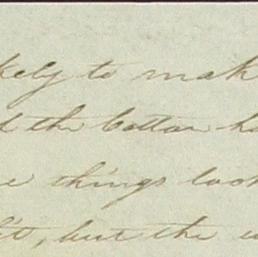 kely to mak
d the Cotton ha
e things look
lt, but the w